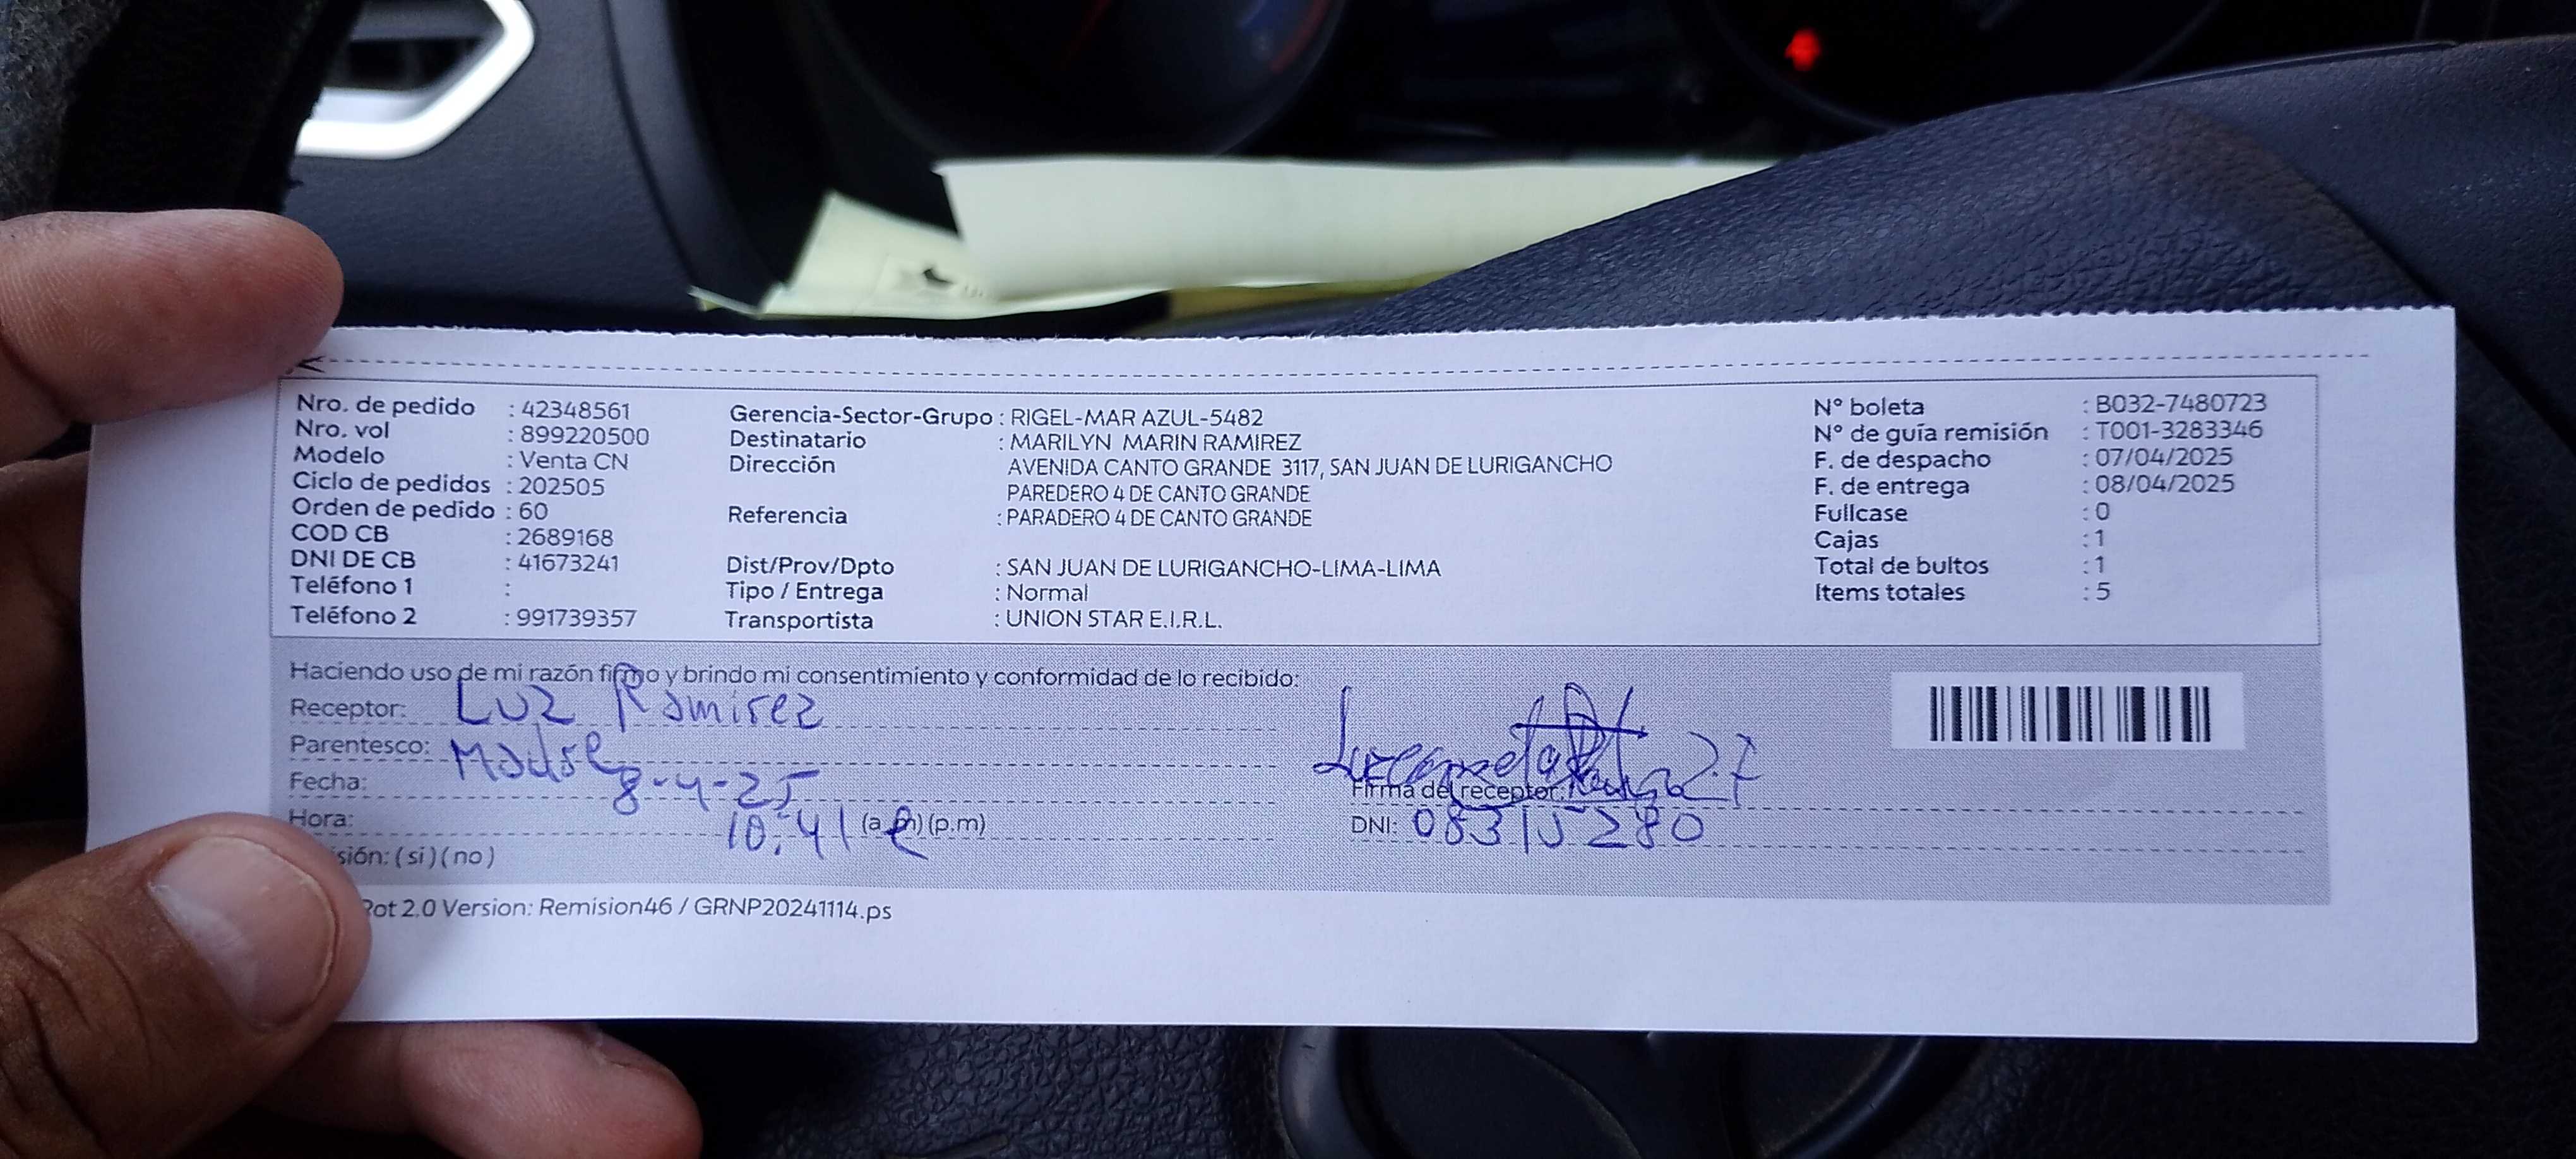 Nro. de pedido : 42348561
Nro. vol : 899220500
Modelo : Venta CN
Ciclo de pedidos : 202505
Orden de pedido : 60
COD CB : 2689168
DNI DE CB : 41673241
Teléfono 1 :
Teléfono 2 : 991739357
Gerencia-Sector-Grupo : RIGEL-MAR AZUL-5482
Destinatario : MARILYN MARIN RAMIREZ
Dirección AVENIDA CANTO GRANDE 3117, SAN JUAN DE LURIGANCHO
PAREDERO 4 DE CANTO GRANDE
Referencia : PARADERO 4 DE CANTO GRANDE
Dist/Prov/Dpto : SAN JUAN DE LURIGANCHO-LIMA-LIMA
Tipo / Entrega : Normal
Transportista : UNION STAR E.I.R.L.
N° boleta : B032-7480723
N° de guía remisión : T001-3283346
F. de despacho : 07/04/2025
F. de entrega : 08/04/2025
Fullcase : 0
Cajas : 1
Total de bultos : 1
Items totales : 5
Haciendo uso de mi razón firmo y brindo mi consentimiento y conformidad de lo recibido:
Receptor: Luz Ramirez
Parentesco: Madre
Fecha: 8-4-25
Hora: 10:41 (a.m) (p.m)
sión: ( si ) ( no )
Firma del receptor:
DNI: 08315280
Rot 2.0 Version: Remision46 / GRNP20241114.ps